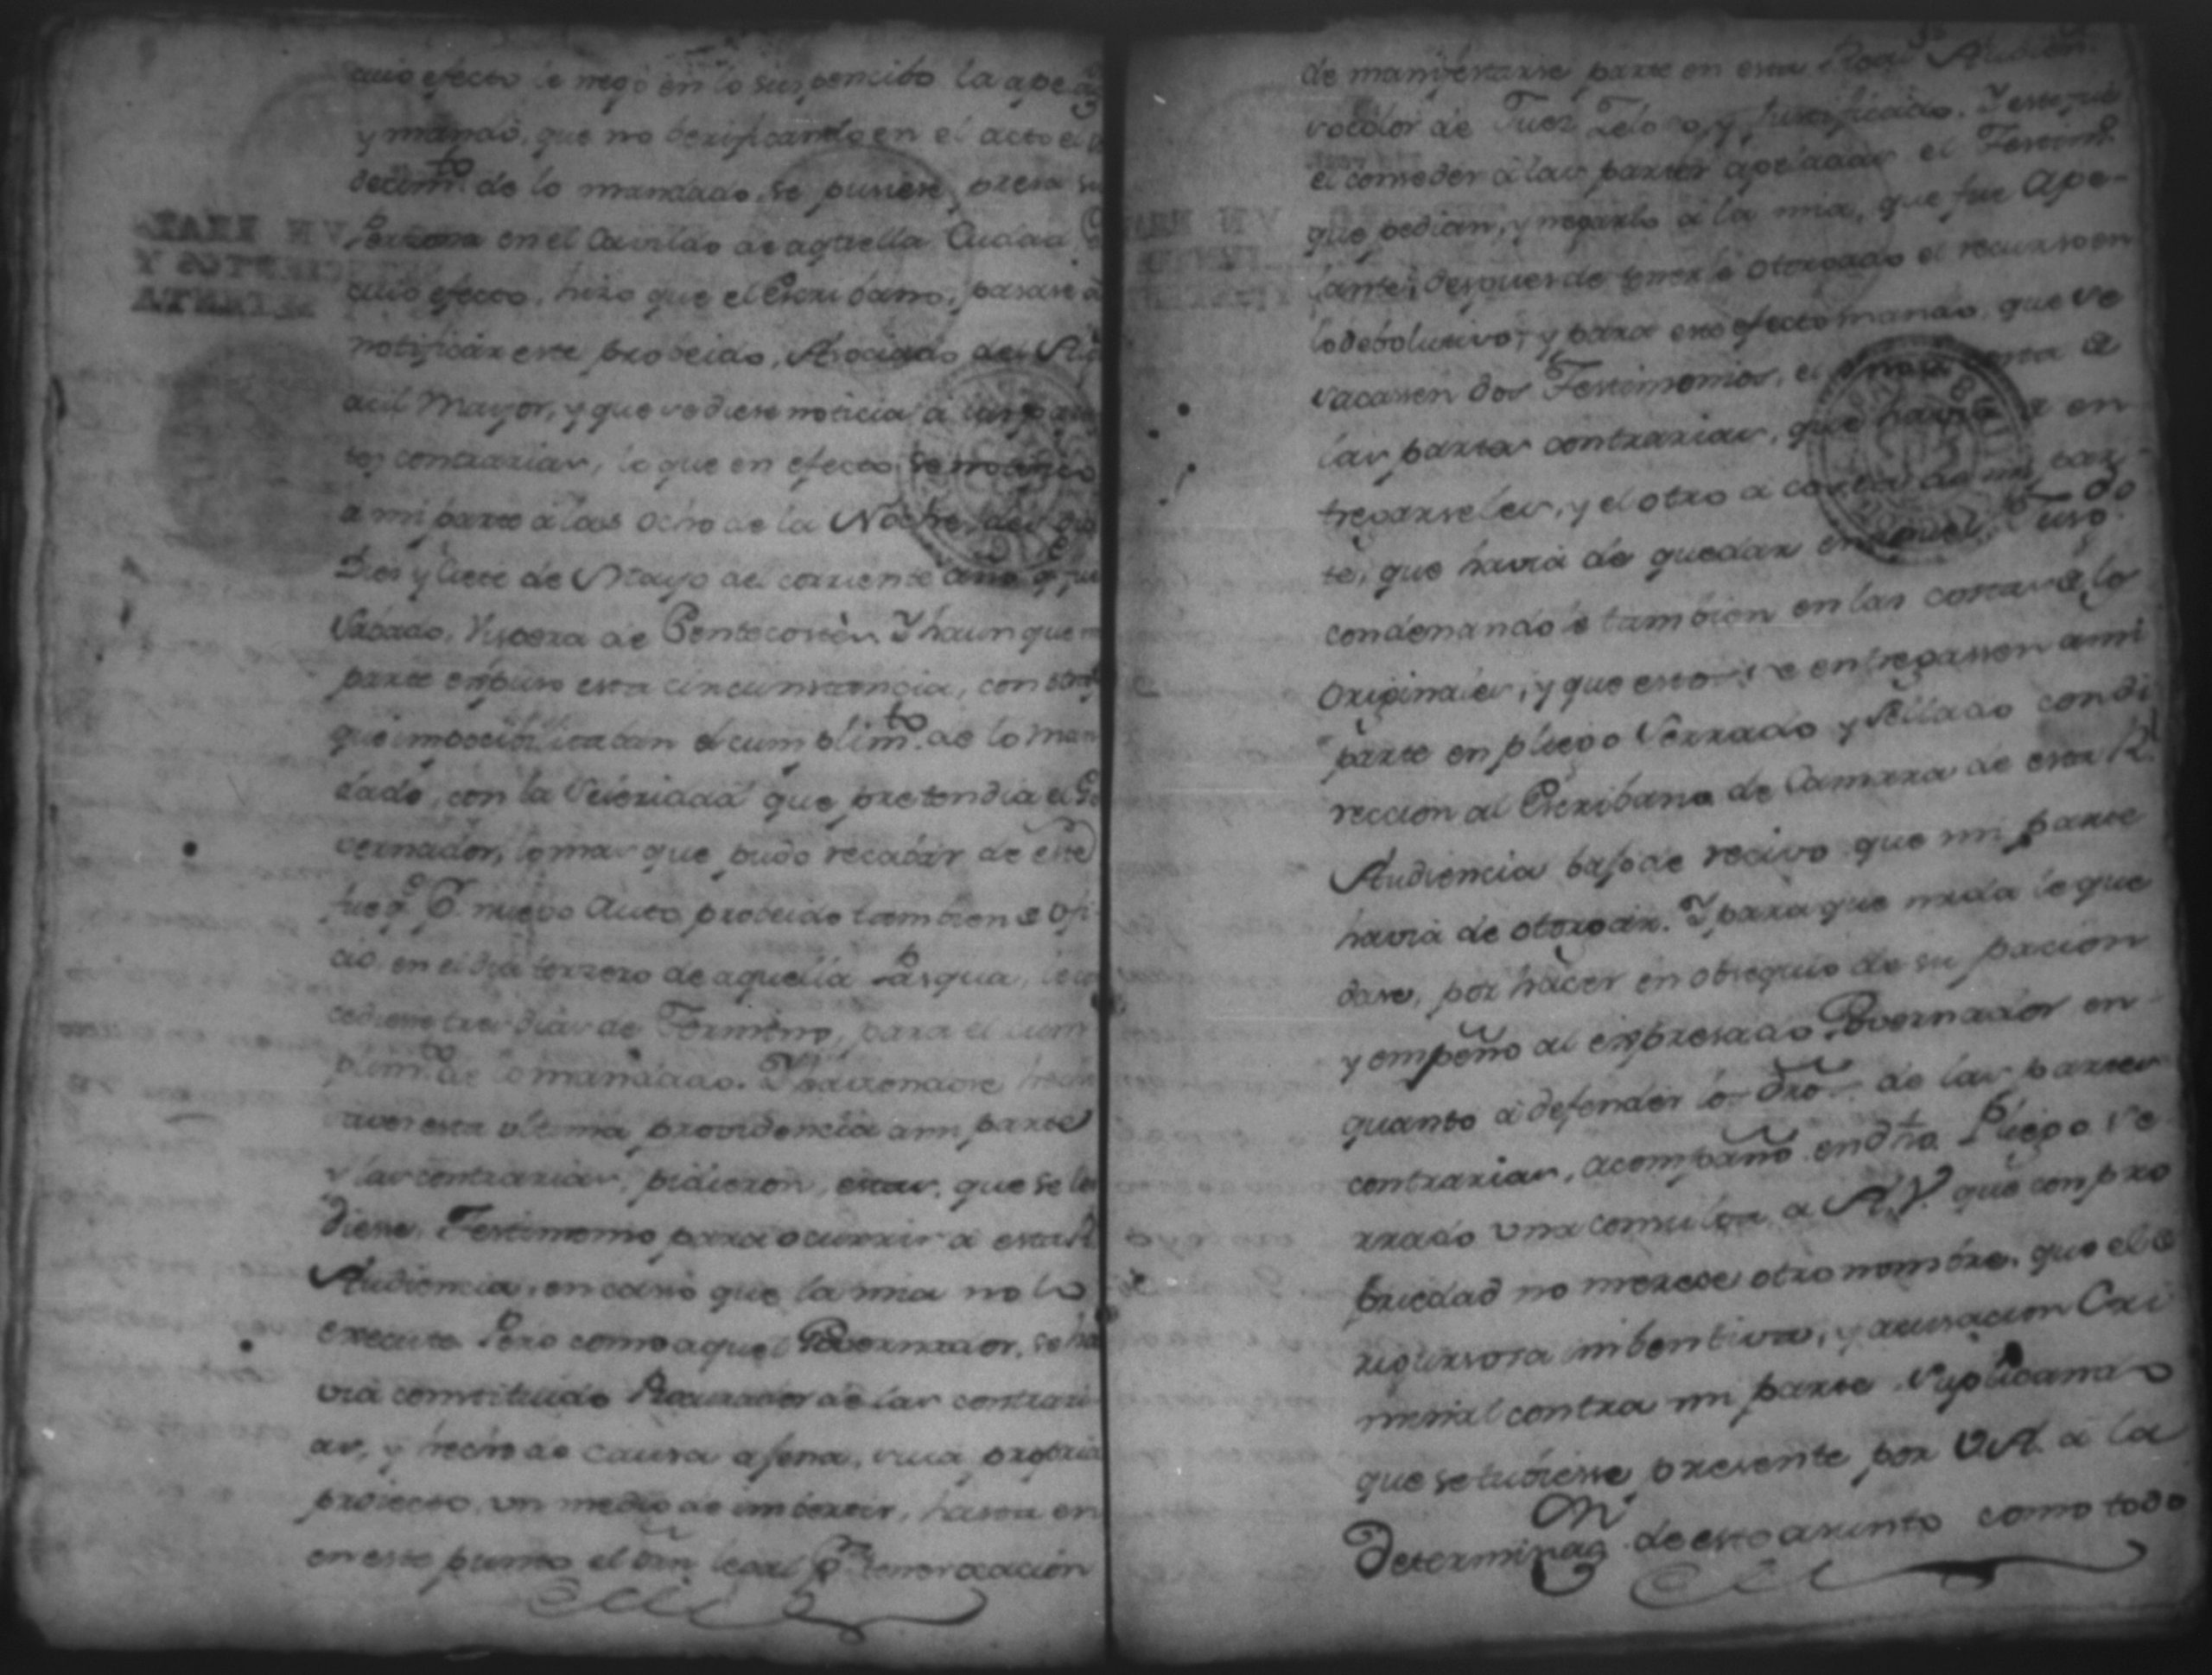 cuio efecto le negó en lo suspencibo la apela
y mandó, que no berificando en el acto el o
decim.to de lo mandado, se pusiese presa su
Persona en el Cavildo de aquella Ciudad, a
cuio efecto, hizo que el Escribano, pasase a
notificar este proveido, Asociado del Al
acil Mayor, y que se diese noticia a las par
tes contrarias, lo que en efecto se notificó
a mi parte a las ocho de la Noche, del dia
Dies y siete de Mayo del corriente año q. fue
Sabado, Vispera de Pentecostes. Y haunque mi
parte expuso esta circunstancia, con otras
que imposibilitaban el cumplim.to de lo man
dado, con la Seleridad que pretendia el Go
vernador, lo mas que pudo recabar de este
fue q.e P. nuebo Auto proveido tambien de ofi
cio en el dia terzero de aquella Pasqua, le con
cediese tres dias de Termino, para el cum
plim.to de lo mandado. Y haviendose hecho
saver esta ultima providencia a mi parte
y las contrarias, pidieron, estas, que se les
diese Testimonio para ocurrir a esta R.l
Audiencia, en caso que la mia no lo
execute. Pero como aquel Governador, se ha
via constituido Procurador de las contrari
as, y hecho de causa agena, suia propria
proiecto un medio de imbertir, hasta en
en este punto el orn legal P. tener ocacion
de manifestarse parte en esta Real Audien.
so color de Juez Zeloso, y Justificado. Y este fue
el conseder a las partes apeladas el Testim.o
que pedian, y negarlo a la mia, que fue Ape-
lante, despues de tenerle otorgado el recurso en
lo debolutivo; y para este efecto mandó, que se
sacasen dos Testimonios, el uno a costa de
las partes contrarias, que havia de en
tregarseles, y el otro a costa de mi par-
te, que havia de quedar en aquel Jusg.do
condenandole tambien en las costas de los
Originales, y que estos se entregassen a mi
parte en pliego Serrado y Sellado con di
reccion al Escribano de Camara de esta R.l
Audiencia bajo de recivo que mi parte
havia de otorgar. Y para que nada le que
dase, por hacer en obsequio de su pacion
y empeño al expresado Governador en
quanto a defender los dros. de las partes
contrarias, acompañó en dho. Pliego se
rrado una consulta a V.A. que con pro
priedad no merese otro nombre, que el de
rigursosa imbentiva, y acusacion Cri
minal contra mi parte. Suplicando
que se tubiesse presente por V.A. a la
Determinaz.on de este asunto como todo